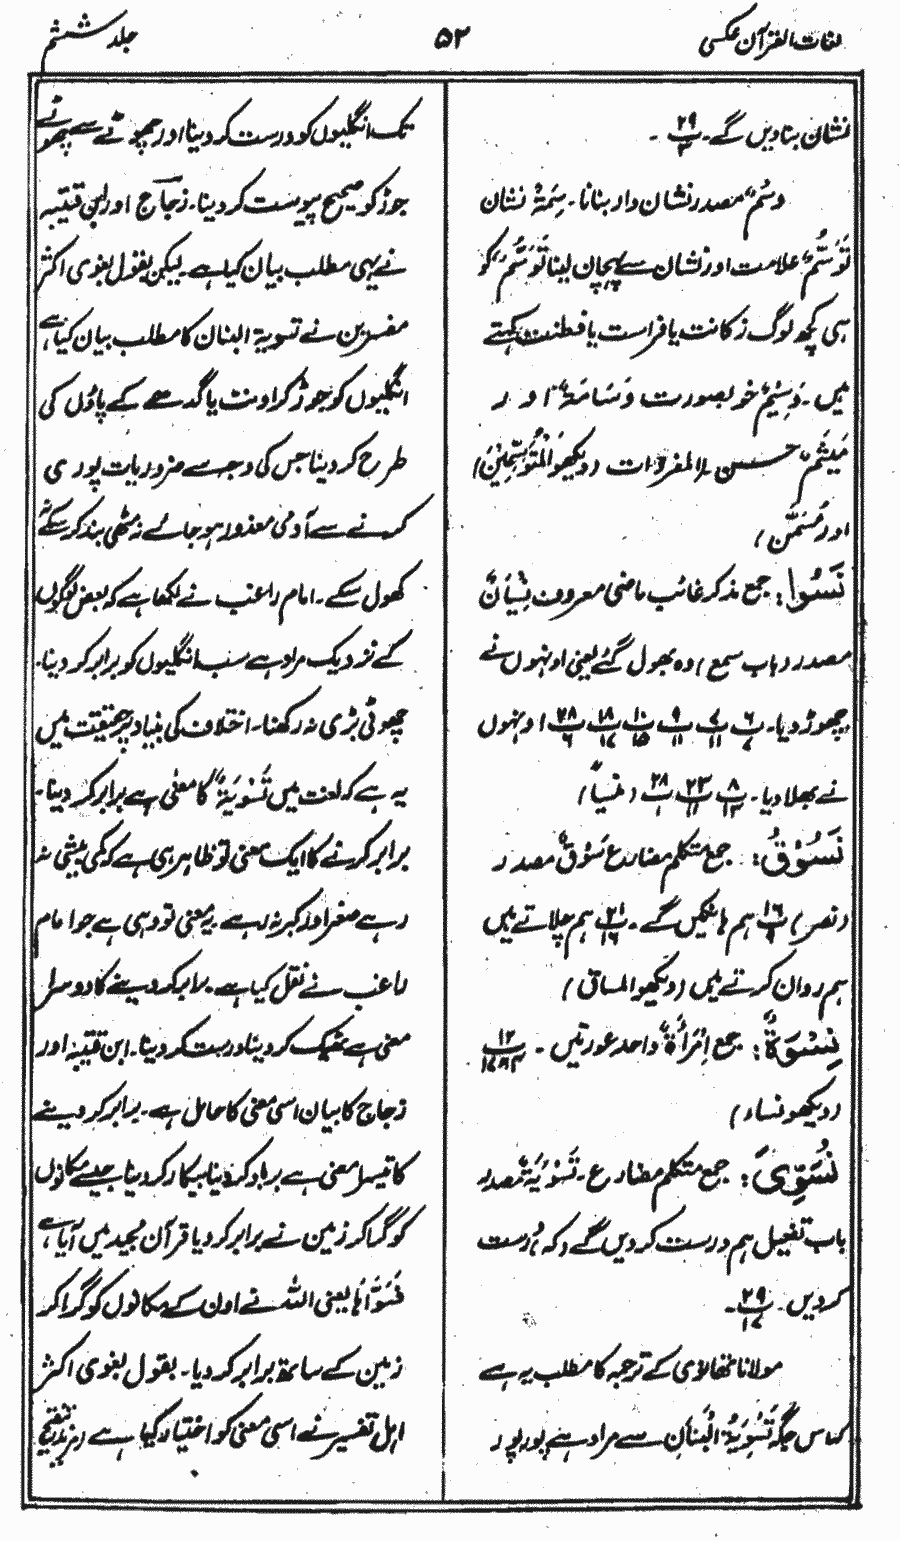 لغات القرآن عکسی
۵۲
جلد ششم
نشان بنادیں گے۔ ۲۹/۳ ۔
وَسْمٌ مصدر نشان دار بنانا۔ سِمَۃٌ نشان
تَوَسُّمٌ علامت اور نشان سے پہچان لینا تَوَسُّمٌ کو
ہی کچھ لوگ زکانت یا فراست یا فطنت کہتے
ہیں۔ وَسِیْمٌ خوبصورت وَسَامَۃٌ اور
مِیْسَمٌ حسن (المفردات (دیکھو اَلْمُتَوَسِّمِیْنَ)
اور مُسَمًّی)
نَسُوْا: جمع مذکر غائب ماضی معروف نِسْیَانٌ
مصدر (باب سمع) وہ بھول گئے یعنی اونہوں نے
چھوڑ دیا۔ ۶/۷ ۷/۱۱ ۹/۱۱ ۱۰/۱۵ ۱۸/۱۷ ۲۸/۶ اونہوں
نے بھلا دیا۔ ۸/۱۳ ۲۳/۱۱ ۲۸/۱ (نسیاً)
نَسُوْقُ: جمع متکلم مضارع سَوْقٌ مصدر
(نصر) ۱۶/۹ ہم ہانکیں گے۔ ۲۱/۱۶ ہم چلاتے ہیں
ہم روان کرتے ہیں (دیکھو المساق)
نِسْوَۃٌ: جمع اِمْرَأَۃٌ واحد عورتیں۔ ۱۲/۱۷،۱۴
(دیکھو نساء)
نُسَوِّیَ: جمع متکلم مضارع۔ تَسْوِیَۃٌ مصدر
باب تفعیل ہم درست کر دیں گے (کہ) درست
کر دیں۔ ۲۹/۱۷۔
مولانا تھانوی کے ترجمہ کا مطلب یہ ہے
کہ اس جگہ تَسْوِیَۃُ الْبَنَانِ سے مراد ہے پور پور
تک انگلیوں کو درست کر دینا اور چھوٹے سے چھوٹے
جوڑ کو صحیح پیوست کر دینا۔ زجاج اور ابن قتیبہ
نے یہی مطلب بیان کیا ہے۔ لیکن بقول بغوی اکثر
مفسرین نے تسویۃ البنان کا مطلب بیان کیا ہے
انگلیوں کو جوڑ کر اونٹ یا گدھے کے پاؤں کی
طرح کر دینا جس کی وجہ سے ضروریات پوری
کرنے سے آدمی معذور ہو جائے نہ مٹھی بند کر سکے نہ
کھول سکے۔ امام راغب نے لکھا ہے کہ بعض لوگوں
کے نزدیک مراد ہے سب انگلیوں کو برابر کر دینا۔
چھوٹی بڑی نہ رکھنا۔ اختلاف کی بنیاد پر حقیقت میں
یہ ہے کہ لغت میں تَسْوِیَۃٌ کا معنی ہے برابر کر دینا۔
برابر کرنے کا ایک معنی تو ظاہر ہی ہے کہ کمی بیشی نہ
رہے صغر اور کبر نہ رہے۔ یہ معنی تو وہی ہے جو امام
راغب نے نقل کیا ہے۔ برابر کر دینے کا دوسرا
معنی ہے ٹھیک کر دینا درست کر دینا۔ ابن قتیبہ اور
زجاج کا بیان اسی معنی کا حامل ہے۔ برابر کر دینے
کا تیسرا معنی ہے برباد کر دینا بیکار کر دینا جیسے مکانوں
کو گرا کر زمین نے برابر کر دیا قرآن مجید میں آیا ہے
فَسَوّٰاھَا یعنی اللہ نے اون کے مکانوں کو گرا کر
زمین کے ساتھ برابر کر دیا۔ بقول بغوی اکثر
اہل تفسیر نے اسی معنی کو اختیار کیا ہے